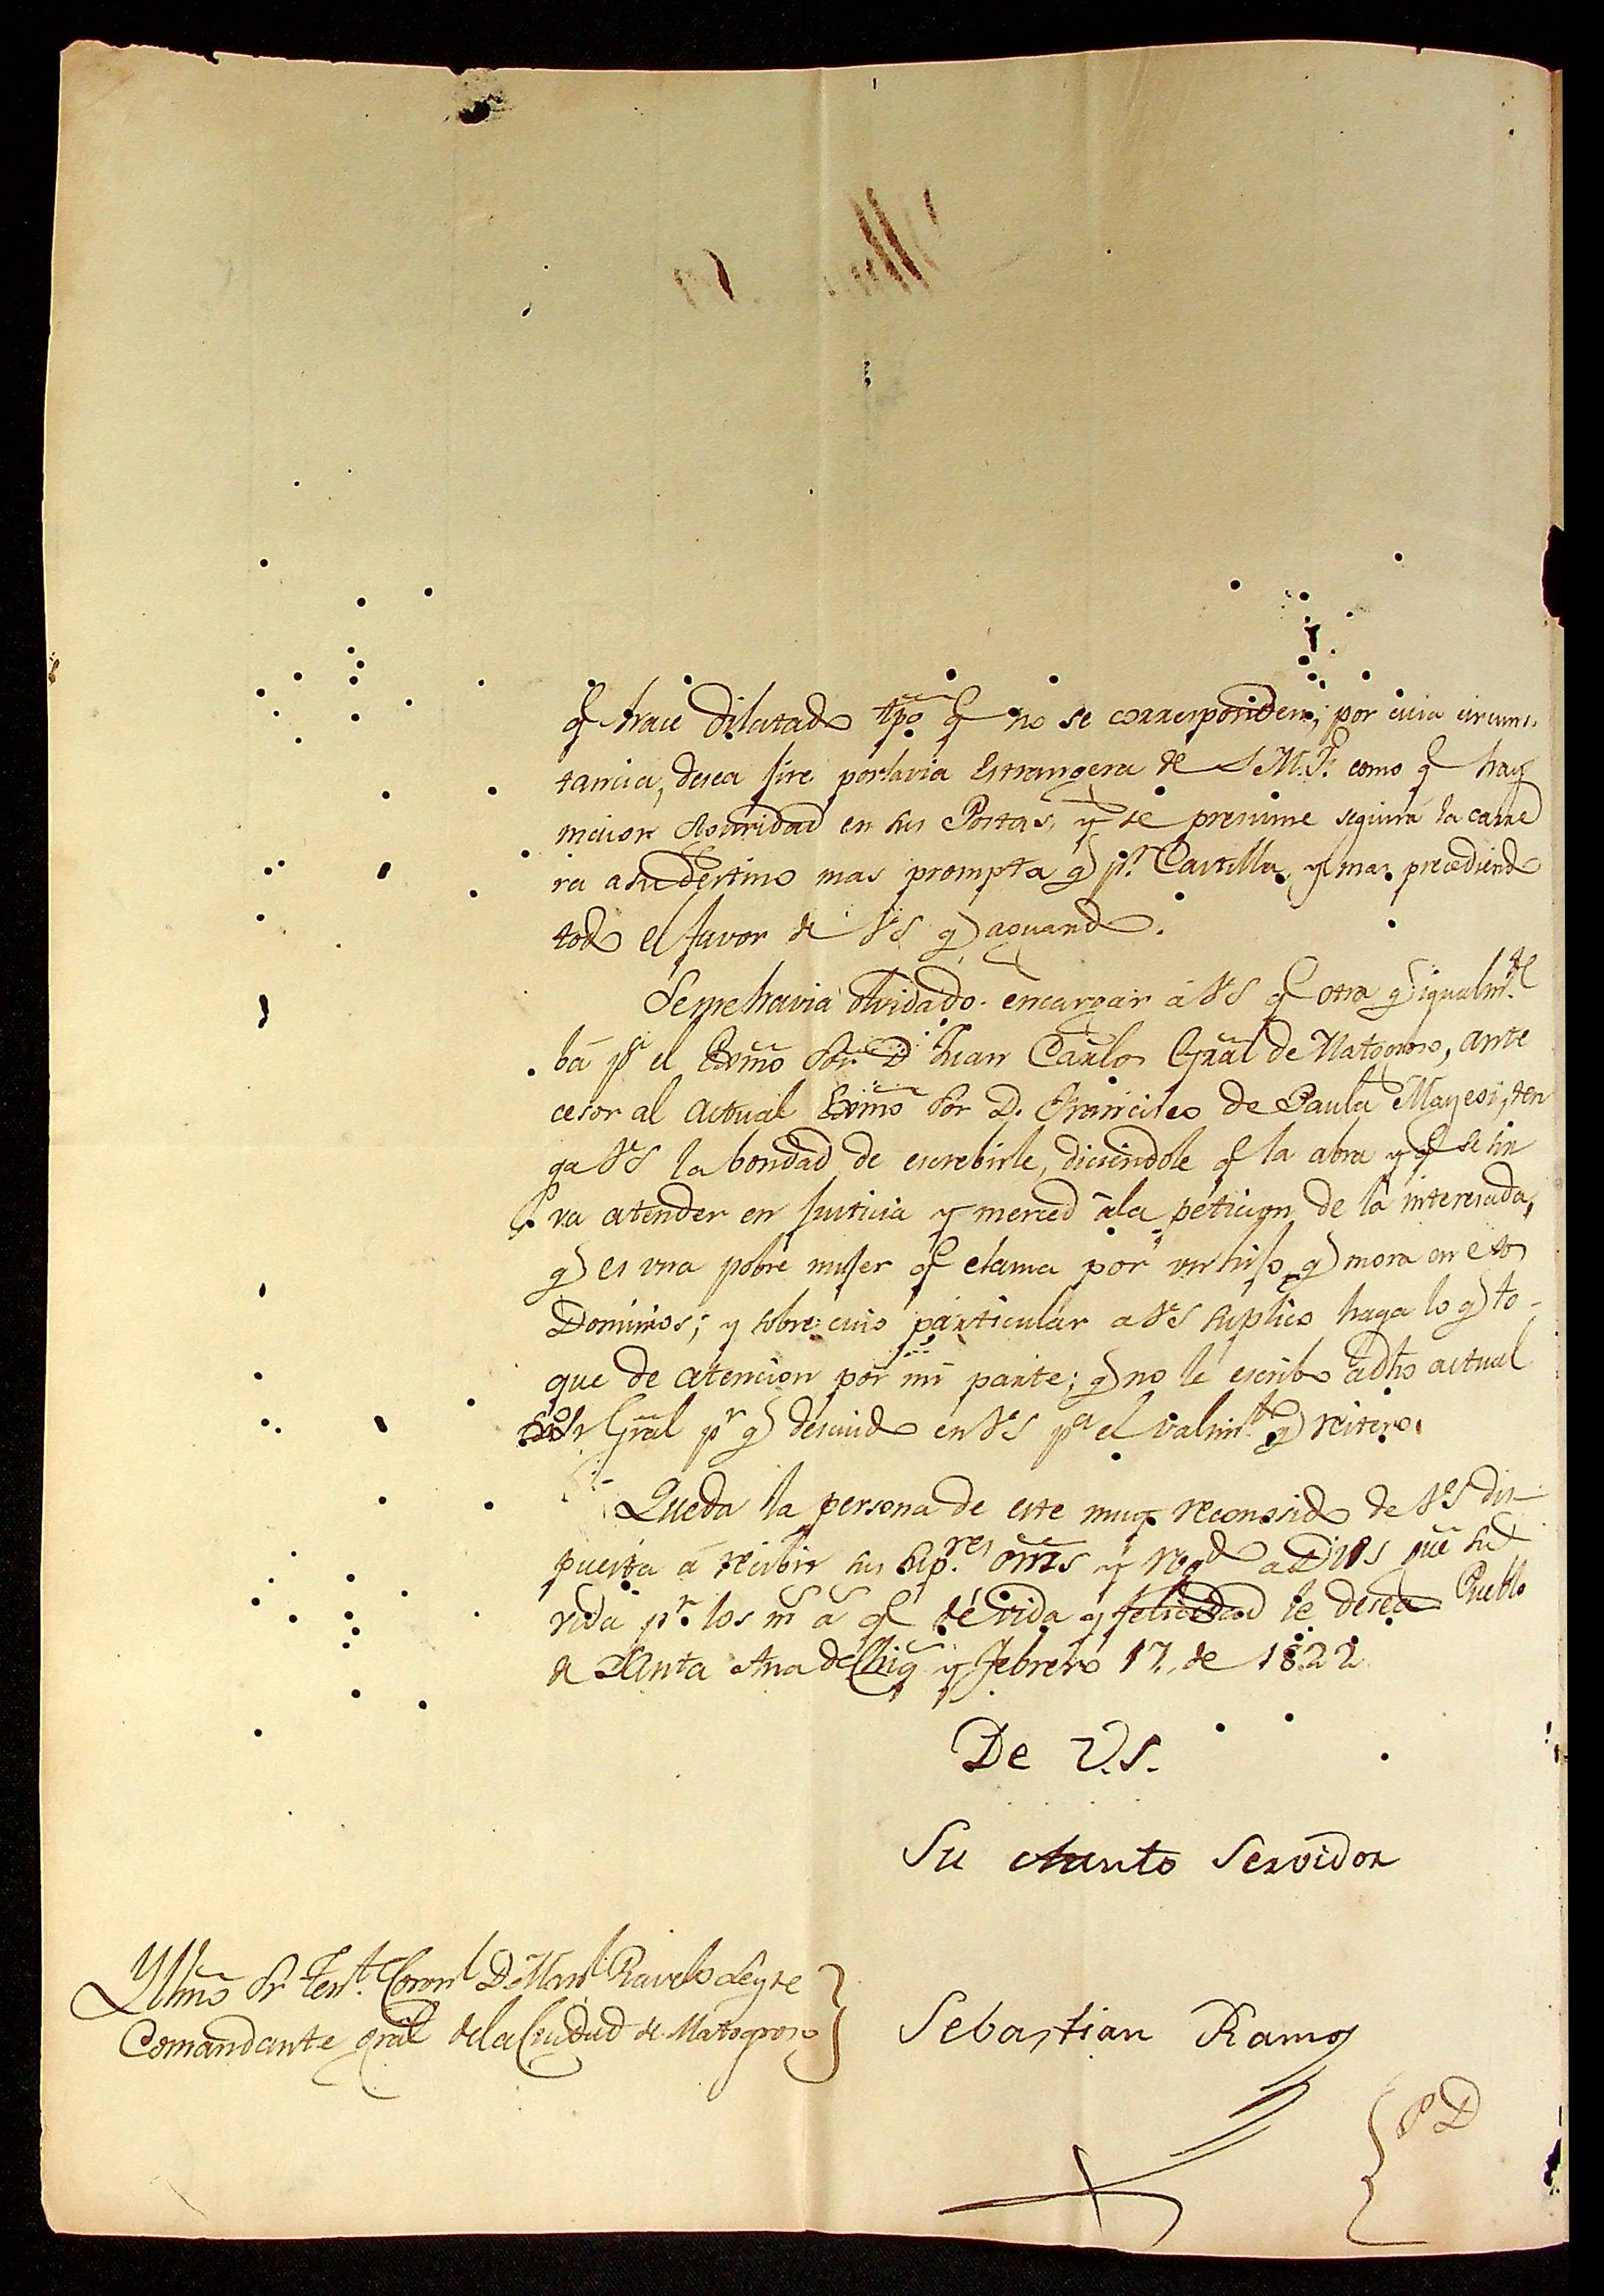 q.e hace dilatado tpõ q.e no se corresponden; por cuia circuns.
tancia, desea jire por la via Estrangera de S.M.F. como q.e hay
maior seguridad en sus Postas, y se presume seguira la carre
ra a su destino mas prompta q.e p.r Castilla, y mas precediendo
todo el favor de VS q.e aguardo.
Se me havia olvidado encargar á VS q.e otra q.e igualm.te
bá p.a el Exmõ Sor D Juan Carlos Grãl de Matogroso, ante
cesor al actual Exmõ Sor D. Francisco de Paula Mayesi, ten
ga VS la bondad de escrebirle, diciendole q.e la abra y q.e se sir
va atender en justicia y merced á la peticion de la interesada,
q.e es una pobre mujer q.e clama por un hijo q.e mora en esos
Dominios; y sobre cuio particular a VS suplico haga lo q.e to-
que de atencion por mi parte; q.e no le escribo a dho actual
Sor Grãl p.r q.e descuido en VS p.a el valim.to q.e reitero.
Queda la persona de este muy reconosido de VS dis-
puesta á recibir sus sup.res orñs y rog.do a Dios gũe su
vida p.r los m.s a.s q.e de vida y felicidad le desea Pueblo
de Santa Ana de Chiq.s y Febrero 17, de 1822
De V.S.
Su Atento Servidor
Yllmõ Sr Ten.te Coron.l D. Man.l Ravelo Leyte
Comandante grãl de la Ciudad de Matogroso
Sebastian Ramos
P D